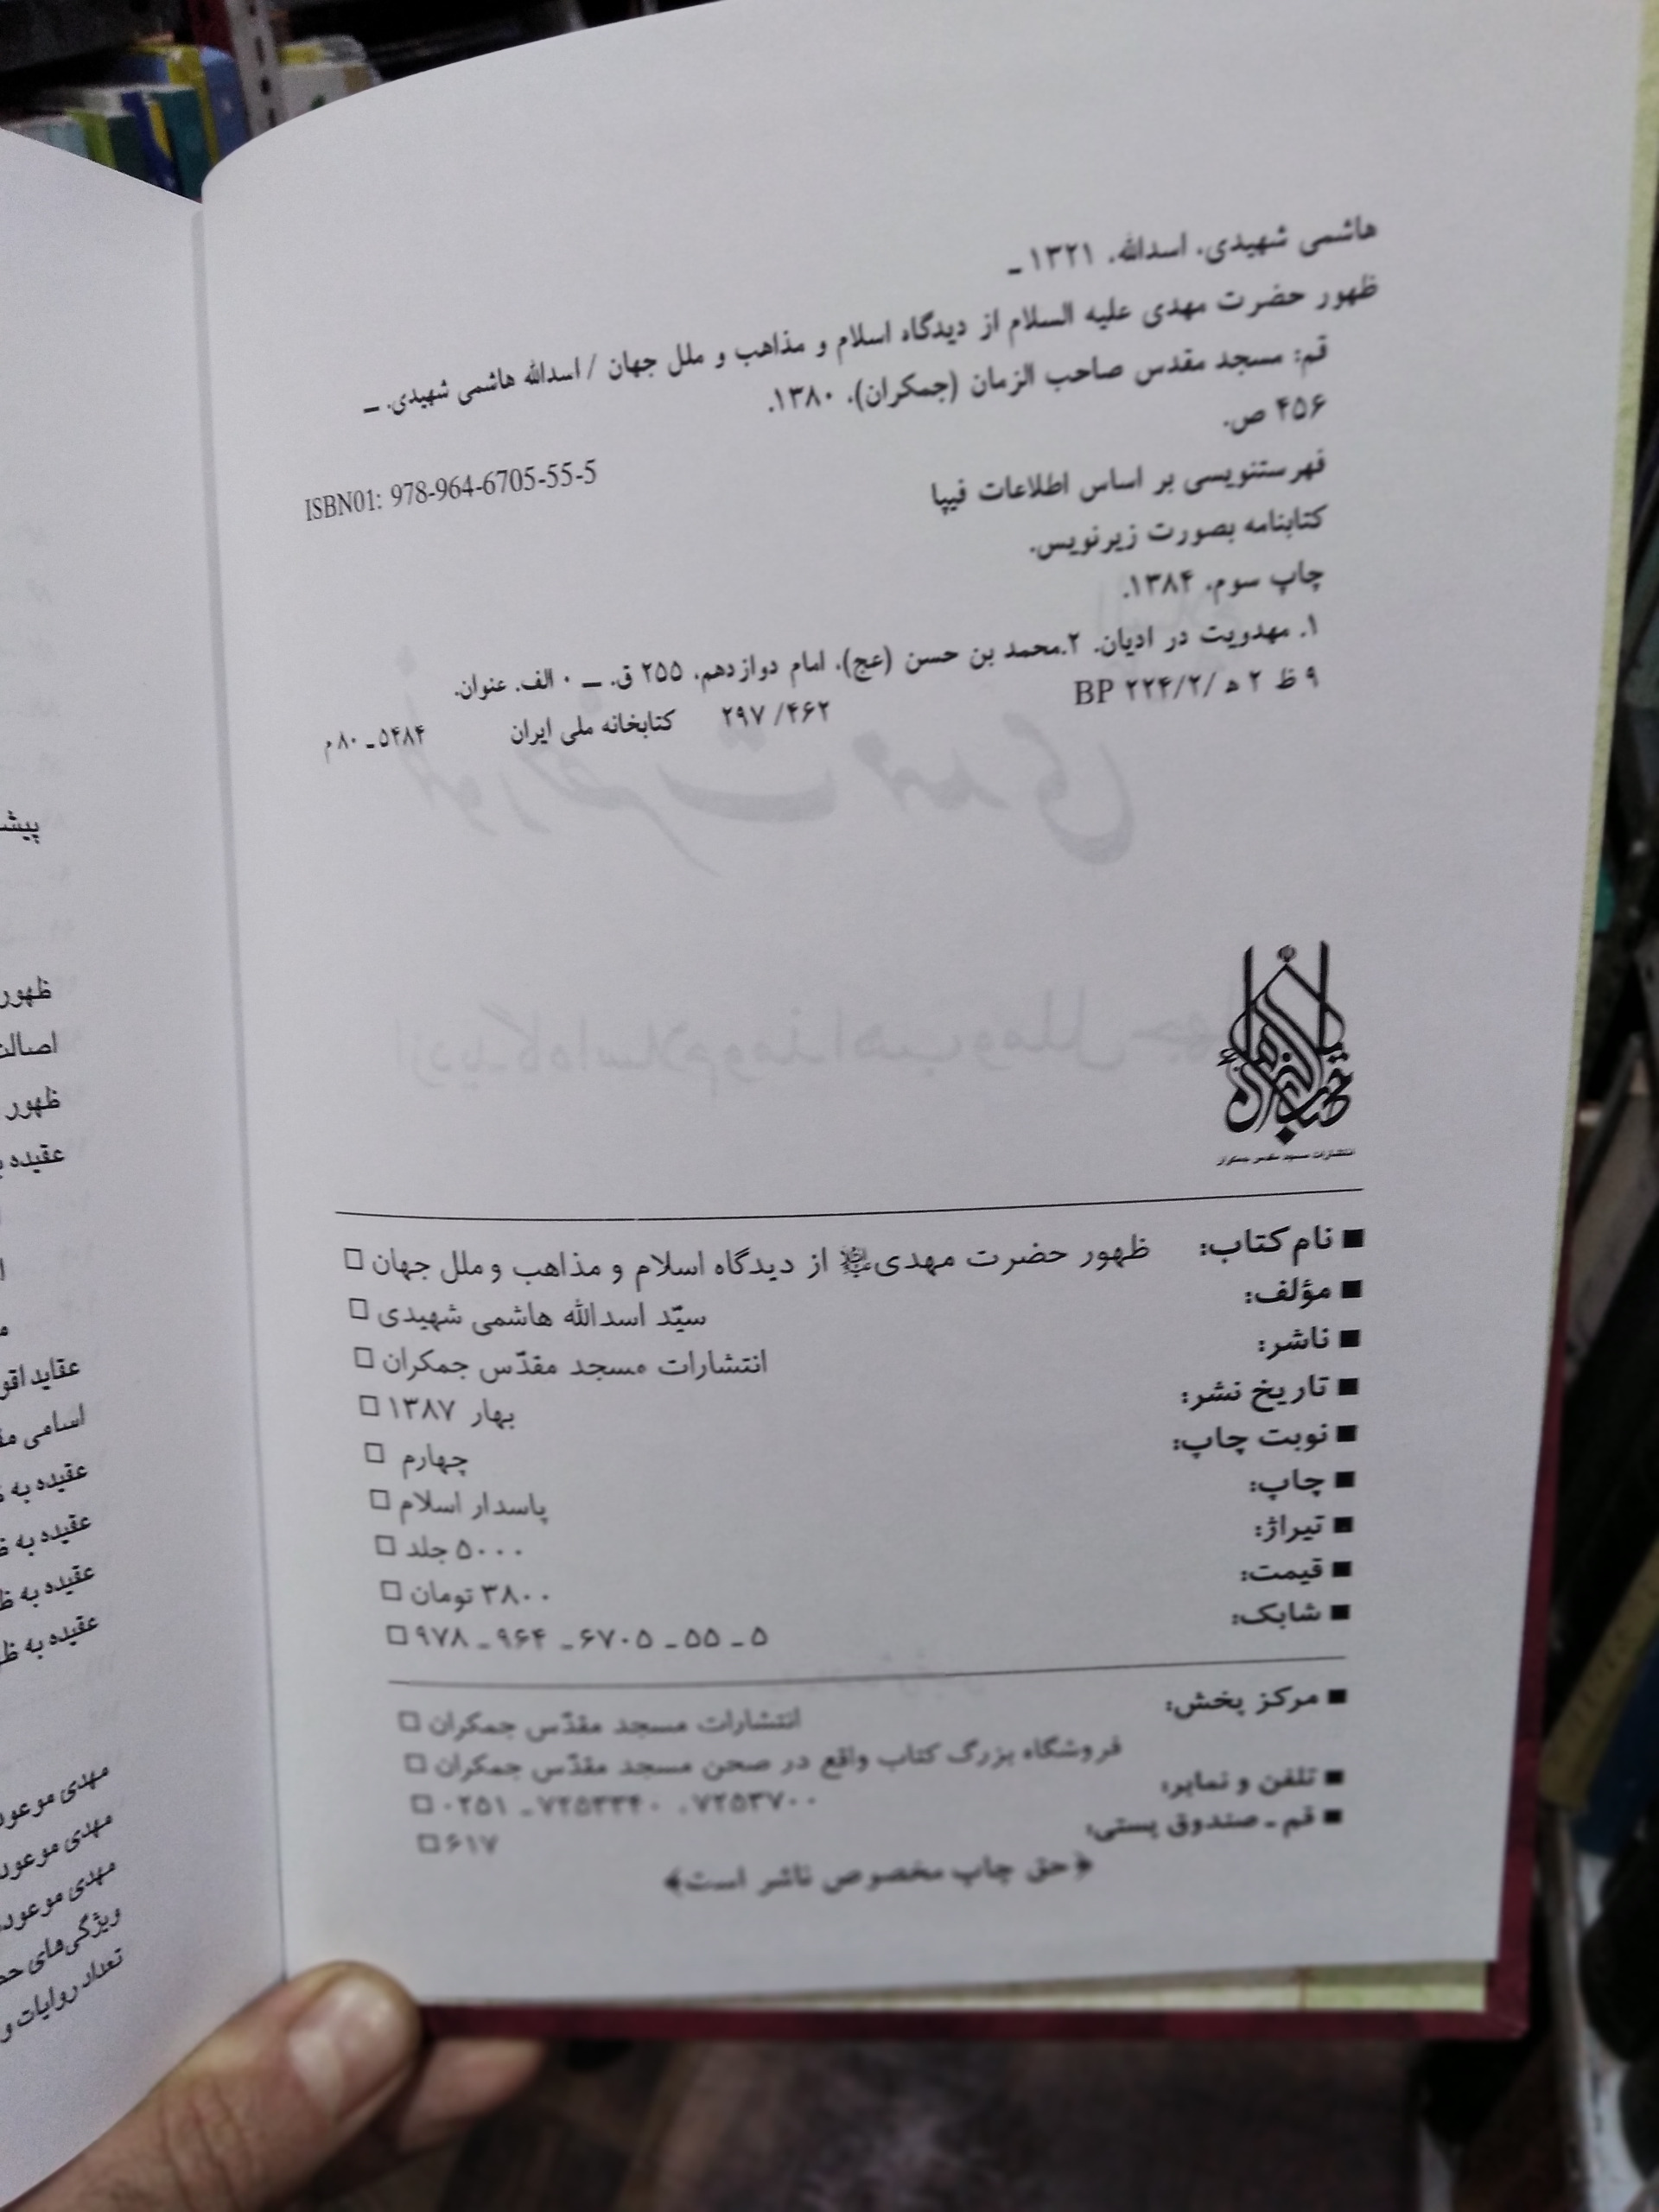 هاشمی شهیدی، اسدالله، ۱۳۲۱ ـ
ظهور حضرت مهدی علیه السلام از دیدگاه اسلام و مذاهب و ملل جهان / اسدالله هاشمی شهیدی. ـ
قم: مسجد مقدس صاحب الزمان (جمکران)، ۱۳۸۰.
۴۵۶ ص.
ISBN01: 978-964-6705-55-5
فهرستنویسی بر اساس اطلاعات فیپا
کتابنامه بصورت زیرنویس.
چاپ سوم، ۱۳۸۴.
۱. مهدویت در ادیان. ۲.محمد بن حسن (عج)، امام دوازدهم، ۲۵۵ ق. ـ ۰ الف. عنوان.
۹ ظ ۲ ه /۲۲۴/۲ BP
۲۹۷ /۴۶۲ کتابخانه ملی ایران ۵۴۸۴ ـ ۸۰ م
انتشارات مسجد مقدس جمکران
■ نام کتاب: ظهور حضرت مهدی از دیدگاه اسلام و مذاهب و ملل جهان □
■ مؤلف: سیّد اسدالله هاشمی شهیدی □
■ ناشر: انتشارات مسجد مقدّس جمکران □
■ تاریخ نشر: بهار ۱۳۸۷ □
■ نوبت چاپ: چهارم □
■ چاپ: پاسدار اسلام □
■ تیراژ: ۵۰۰۰ جلد □
■ قیمت: ۳۸۰۰ تومان □
■ شابک: ۵ ـ ۵۵ ـ ۶۷۰۵ ـ ۹۶۴ ـ ۹۷۸ □
■ مرکز پخش: انتشارات مسجد مقدّس جمکران □
فروشگاه بزرگ کتاب واقع در صحن مسجد مقدّس جمکران □
■ تلفن و نمابر: ۷۲۵۳۷۰۰ ، ۷۲۵۳۳۴۰ ـ ۰۲۵۱ □
■ قم ـ صندوق پستی: ۶۱۷ □
﴿حق چاپ مخصوص ناشر است﴾
ظهور
ظهور
عقیده
عقیده به
عقیده به
عقیده به
عقیده به
مهدی موعود
مهدی موعود
مهدی موعود
ویژگی‌های
تعداد روایات و